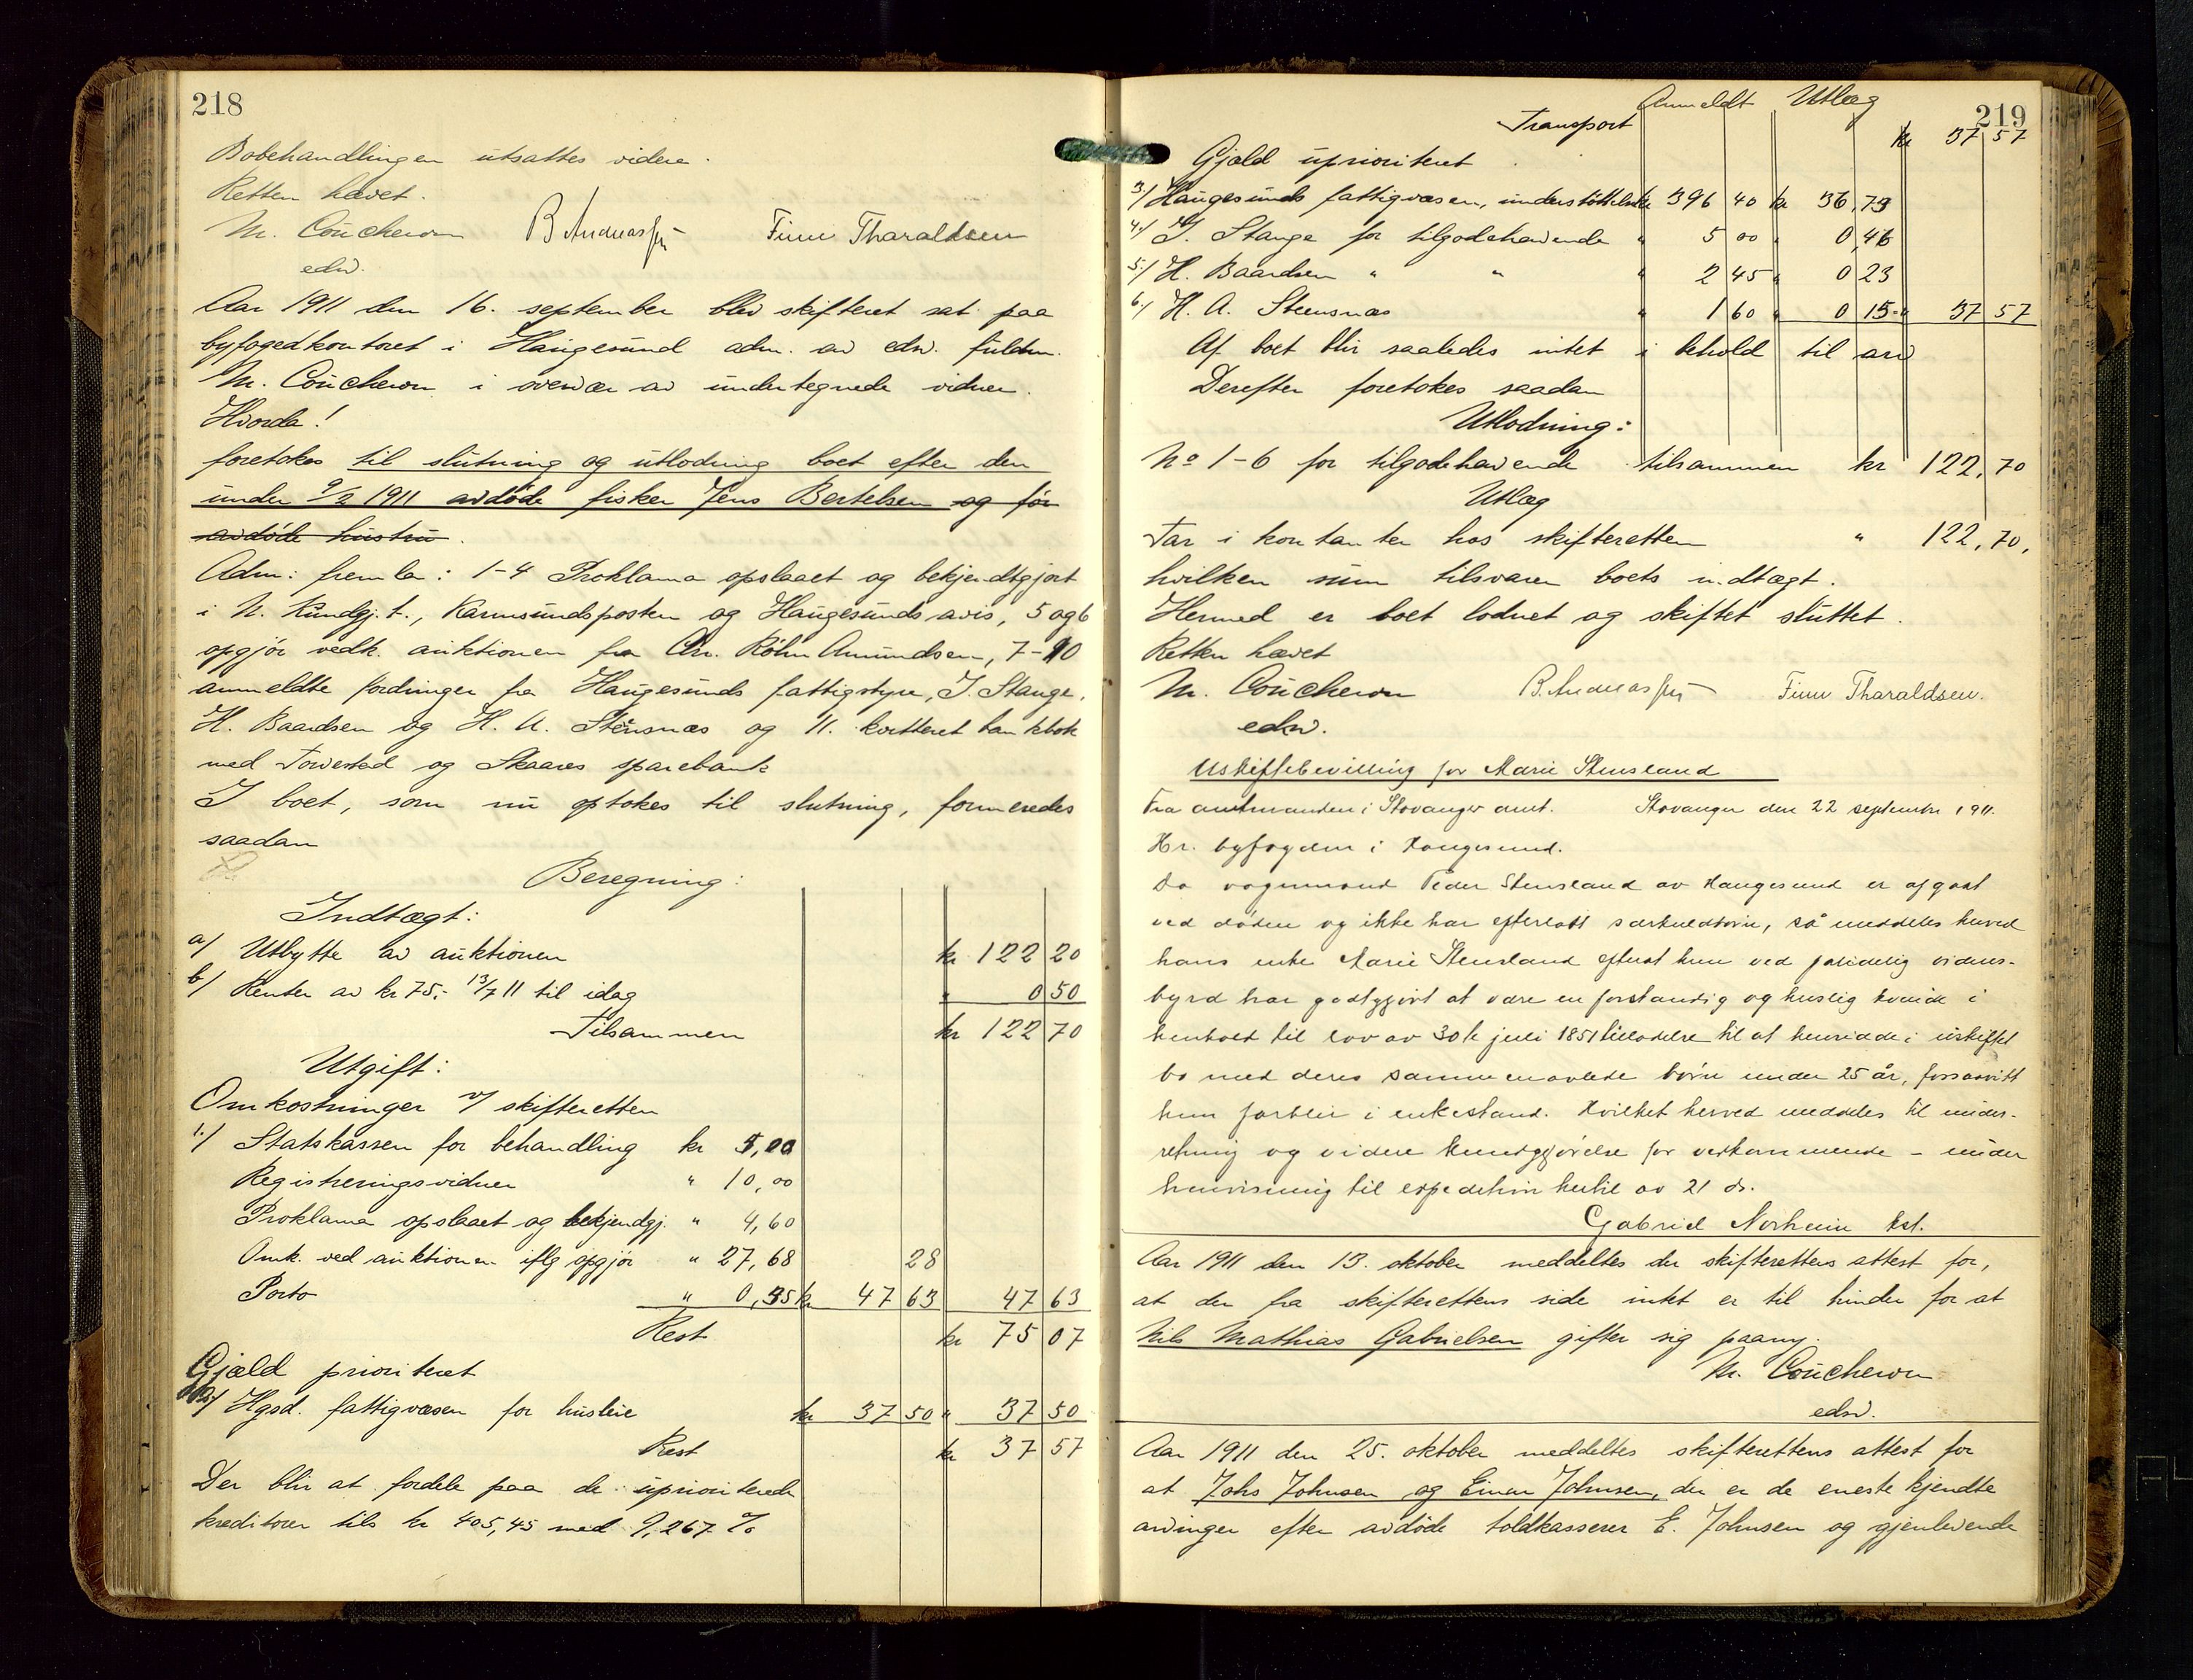 218
Bobehandlingen utsattes videre.
Retten hævet.
M. Coucheron B. Andreassen Finn Tharaldsen
edsv.
Aar 1911 den 16. september blev skifteret sat paa
byfogedkontoret i Haugesund adm. av edsv. fuldm.
M. Coucheron i overvær av undertegnede vidner.
Hvorda!
foretokes til slutning og utlodning boet efter den
under 9/2 1911 avdöde fisker Jens Bertelsen og før
avdöde hustru.
Adm: fremla: 1-4 Proklama opslaaet og bekjendtgjort
i N. Kundgj.t., Karmsundsposten og Haugesunds avis, 5 og 6
opgjör vedk. auktionen fra Chr. Röhr Amundsen, 7-10
anmeldte fordringer fra Haugesunds fattigstyre, J. Stange,
H. Baardsen og H. A. Stensnæs og 11. kvitteret bankbok
med Torvestad og Skaares sparebank
I boet, som nu optokes til slutning, formeredes
saadan
Beregning:
Indtægt:
a/ Utbytte av auktionen kr 122 20
b/ Renter av kr 75,- 13/7 11 til idag " 0 50
Tilsammen kr 122 70
Utgift:
Omkostninger v/ skifteretten
1./ Statskassen for behandling kr 5,00
Registreringsvidner " 10,00
Proklama opslaaet og bekjendgj. " 4,60
Omk. ved auktionen iflg opgjör " 27,68 28
Porto " 0,35 kr 47 63 47 63
Rest kr 75 07
Gjæld prioriteret
2/ Hgsd. fattigvæsen for husleie kr 37 50 " 37 50
Rest kr 37 57
Der blir at fordele paa de uprioriterede
kreditorer tils kr 405,45 med 9,267 %
219
Anmeldt Utlæg
Transport kr 37 57
Gjæld uprioriteret
3./ Haugesunds fattigvæsen, understöttelse kr 396 40 kr 36,73
4./ J. Stange for tilgodehavende " 5 00 " 0,46
5./ H. Baardsen " " " 2 45 " 0 23
6./ H. A. Steensnæs " 1 60 " 0 15 " 37 57
Af boet blir saaledes intet i behold til arv
Derefter foretokes saadan
Utlodning:
No 1-6 for tilgodehavende tilsammen kr 122,70
Utlæg
Tar i kontanter hos skifteretten " 122,70,
hvilken sum tilsvarer boets indtægt.
Hermed er boet lodnet og skiftet sluttet.
Retten hævet
M. Coucheron B. Andreassen Finn Tharaldsen.
edsv.
Uskiftebevilling for Marie Stensland
Fra amtmanden i Stavanger amt. Stavanger den 22 september 1911.
Hr. byfogden i Haugesund.
Da vognmand Peder Stensland av Haugesund er afgaat
ved döden og ikke har efterlatt særkuldbörn, så meddeles herved
hans enke Marie Stensland efterat hun ved pålidelig vidnes-
byrd har godtgjort at være en forstandig og huslig kvinde i
henhold til lov av 30te juli 1851 tilladelse til at hensidde i uskiftet
bo med deres sammenavlede börn under 25 år, forsåvitt
hun forblir i enkestand. Hvilket herved meddeles til under-
retning og videre kundgjörelse for vedkommende - under
henvisning til expedition hertil av 21 ds.
Gabriel Norheim kst.
Aar 1911 den 13. oktober meddeltes der skifterettens attest for,
at der fra skifterettens side intet er til hinder for at
Nils Mathias Gabrielsen gifter sig paany.
M. Coucheron
edsv.
Aar 1911 den 25. oktober meddeltes skifterettens attest for
at Johs Johnsen og Einar Johnsen, der er de eneste kjendte
arvinger efter avdöde toldkasserer E. Johnsen og gjenlevende